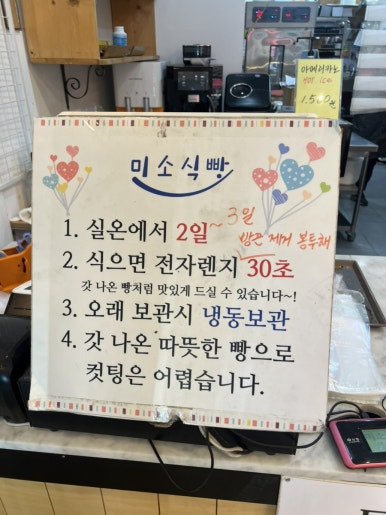 아메리카노
1,500원
미소식빵
1. 실온에서 2일~3일
방관 제거 봉투채
2. 식으면 전자렌지 30초
갓 나온 빵처럼 맛있게 드실 수 있습니다~!
3. 오래 보관시 냉동보관
4. 갓 나온 따뜻한 빵으로
컷팅은 어렵습니다.